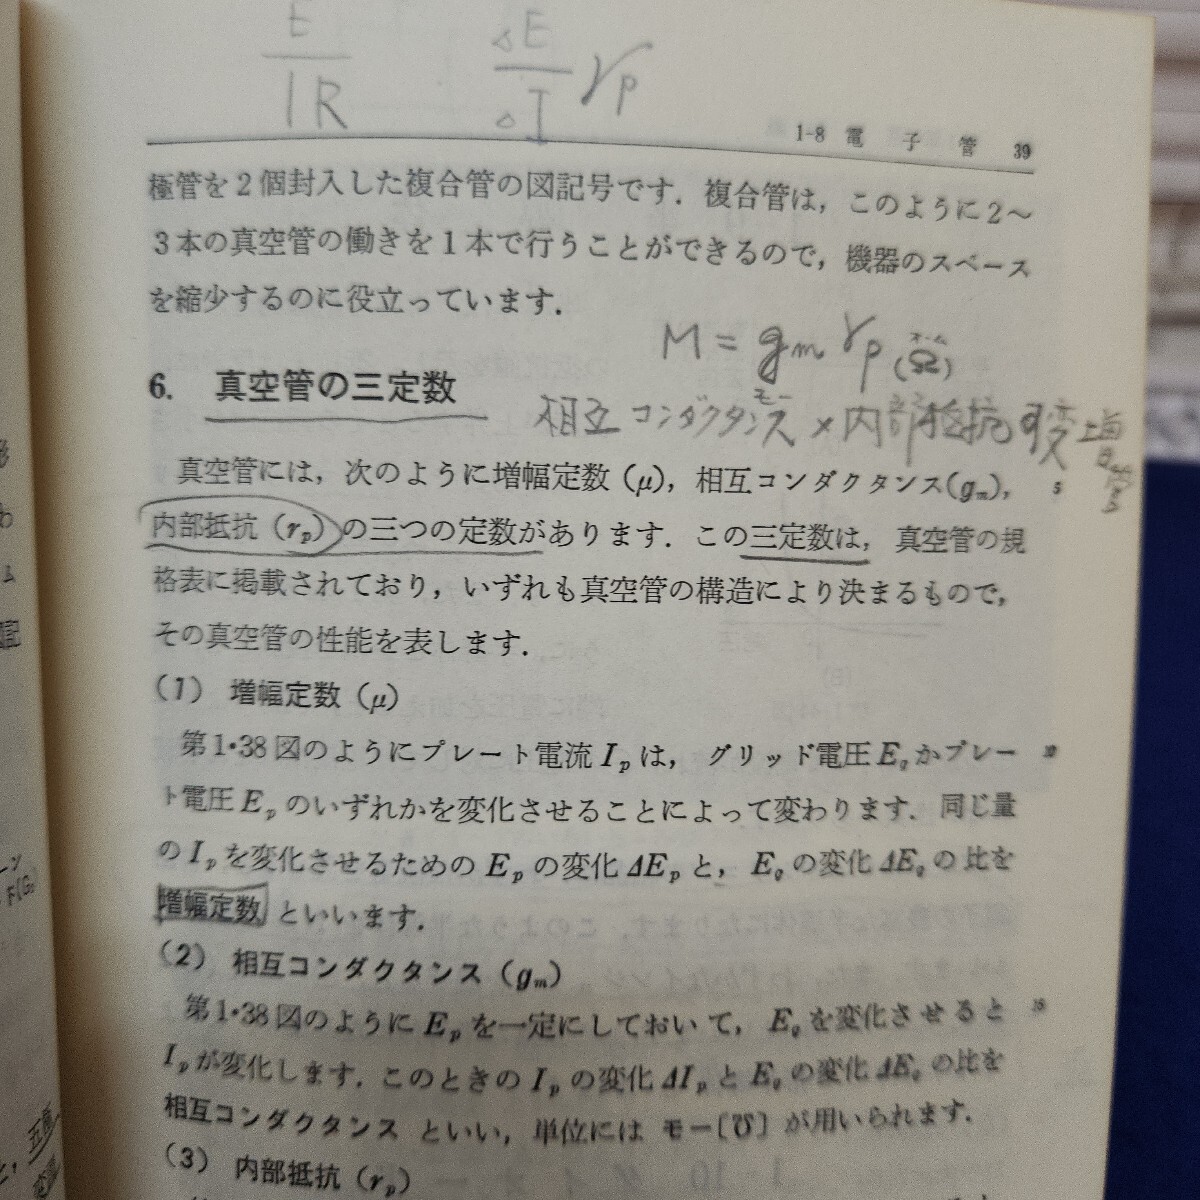 E
IR
ΔE
ΔI
rp
1-8 電子管 39
極管を2個封入した複合管の図記号です．複合管は，このように2～
3本の真空管の働きを1本で行うことができるので，機器のスペース
を縮少するのに役立っています．
M = gm rp (Ω)
オーム
6. 真空管の三定数
モー
相互コンダクタンス×内部抵抗
真空管には，次のように増幅定数（μ），相互コンダクタンス(gm)， 5
内部抵抗（rp）の三つの定数があります．この三定数は，真空管の規
格表に掲載されており，いずれも真空管の構造により決まるもので，
その真空管の性能を表します．
（1） 増幅定数（μ）
第1・38図のようにプレート電流Ipは，グリッド電圧Egかプレー 10
ト電圧Epのいずれかを変化させることによって変わります．同じ量
のIpを変化させるためのEpの変化ΔEpと，Egの変化ΔEgの比を
増幅定数といいます．
（2） 相互コンダクタンス（gm）
第1・38図のようにEpを一定にしておいて，Egを変化させると 15
Ipが変化します．このときのIpの変化ΔIpとEgの変化ΔEgの比を
相互コンダクタンスといい，単位にはモー〔℧〕が用いられます．
（3） 内部抵抗（rp）